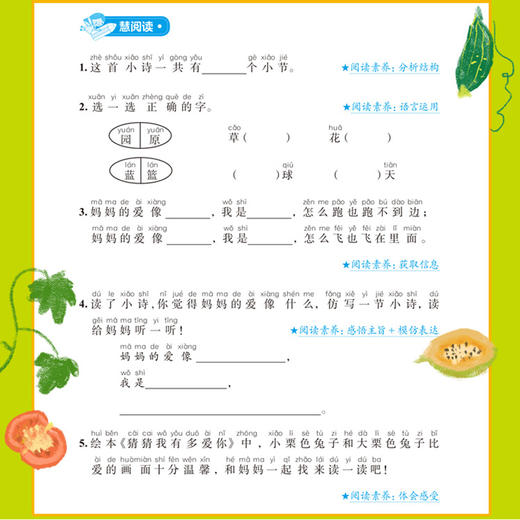 慧阅读
zhè shǒu xiǎo shī yí gòng yǒu gè xiǎo jié
1.这首小诗一共有______个小节。 ★阅读素养:分析结构
xuǎn yi xuǎn zhèng què de zì
2.选一选正确的字。 ★阅读素养:语言运用
yuán yuán cǎo huā
园 原 草( ) 花( )
lán lán qiú tiān
蓝 篮 ( )球 ( )天
mā ma de ài xiàng wǒ shì zěn me pǎo yě pǎo bú dào biān
3.妈妈的爱像______,我是______,怎么跑也跑不到边;
mā ma de ài xiàng wǒ shì zěn me fēi yě fēi zài lǐ miàn
妈妈的爱像______,我是______,怎么飞也飞在里面。
★阅读素养:获取信息
dú le xiǎo shī nǐ jué de mā ma de ài xiàng shén me fǎng xiě yì jié xiǎo shī dú
4.读了小诗,你觉得妈妈的爱像什么,仿写一节小诗,读
gěi mā ma tīng yi tīng
给妈妈听一听! ★阅读素养:感悟主旨+模仿表达
mā ma de ài xiàng
妈妈的爱像______,
wǒ shì
我是______,
______。
huì běn cāi cai wǒ yǒu duō ài nǐ zhōng xiǎo lì sè tù zi hé dà lì sè tù zi bǐ
5.绘本《猜猜我有多爱你》中,小栗色兔子和大栗色兔子比
ài de huà miàn shí fēn wēn xīn hé mā ma yì qǐ zhǎo lái dú yi dú ba
爱的画面十分温馨,和妈妈一起找来读一读吧!
★阅读素养:体会感受